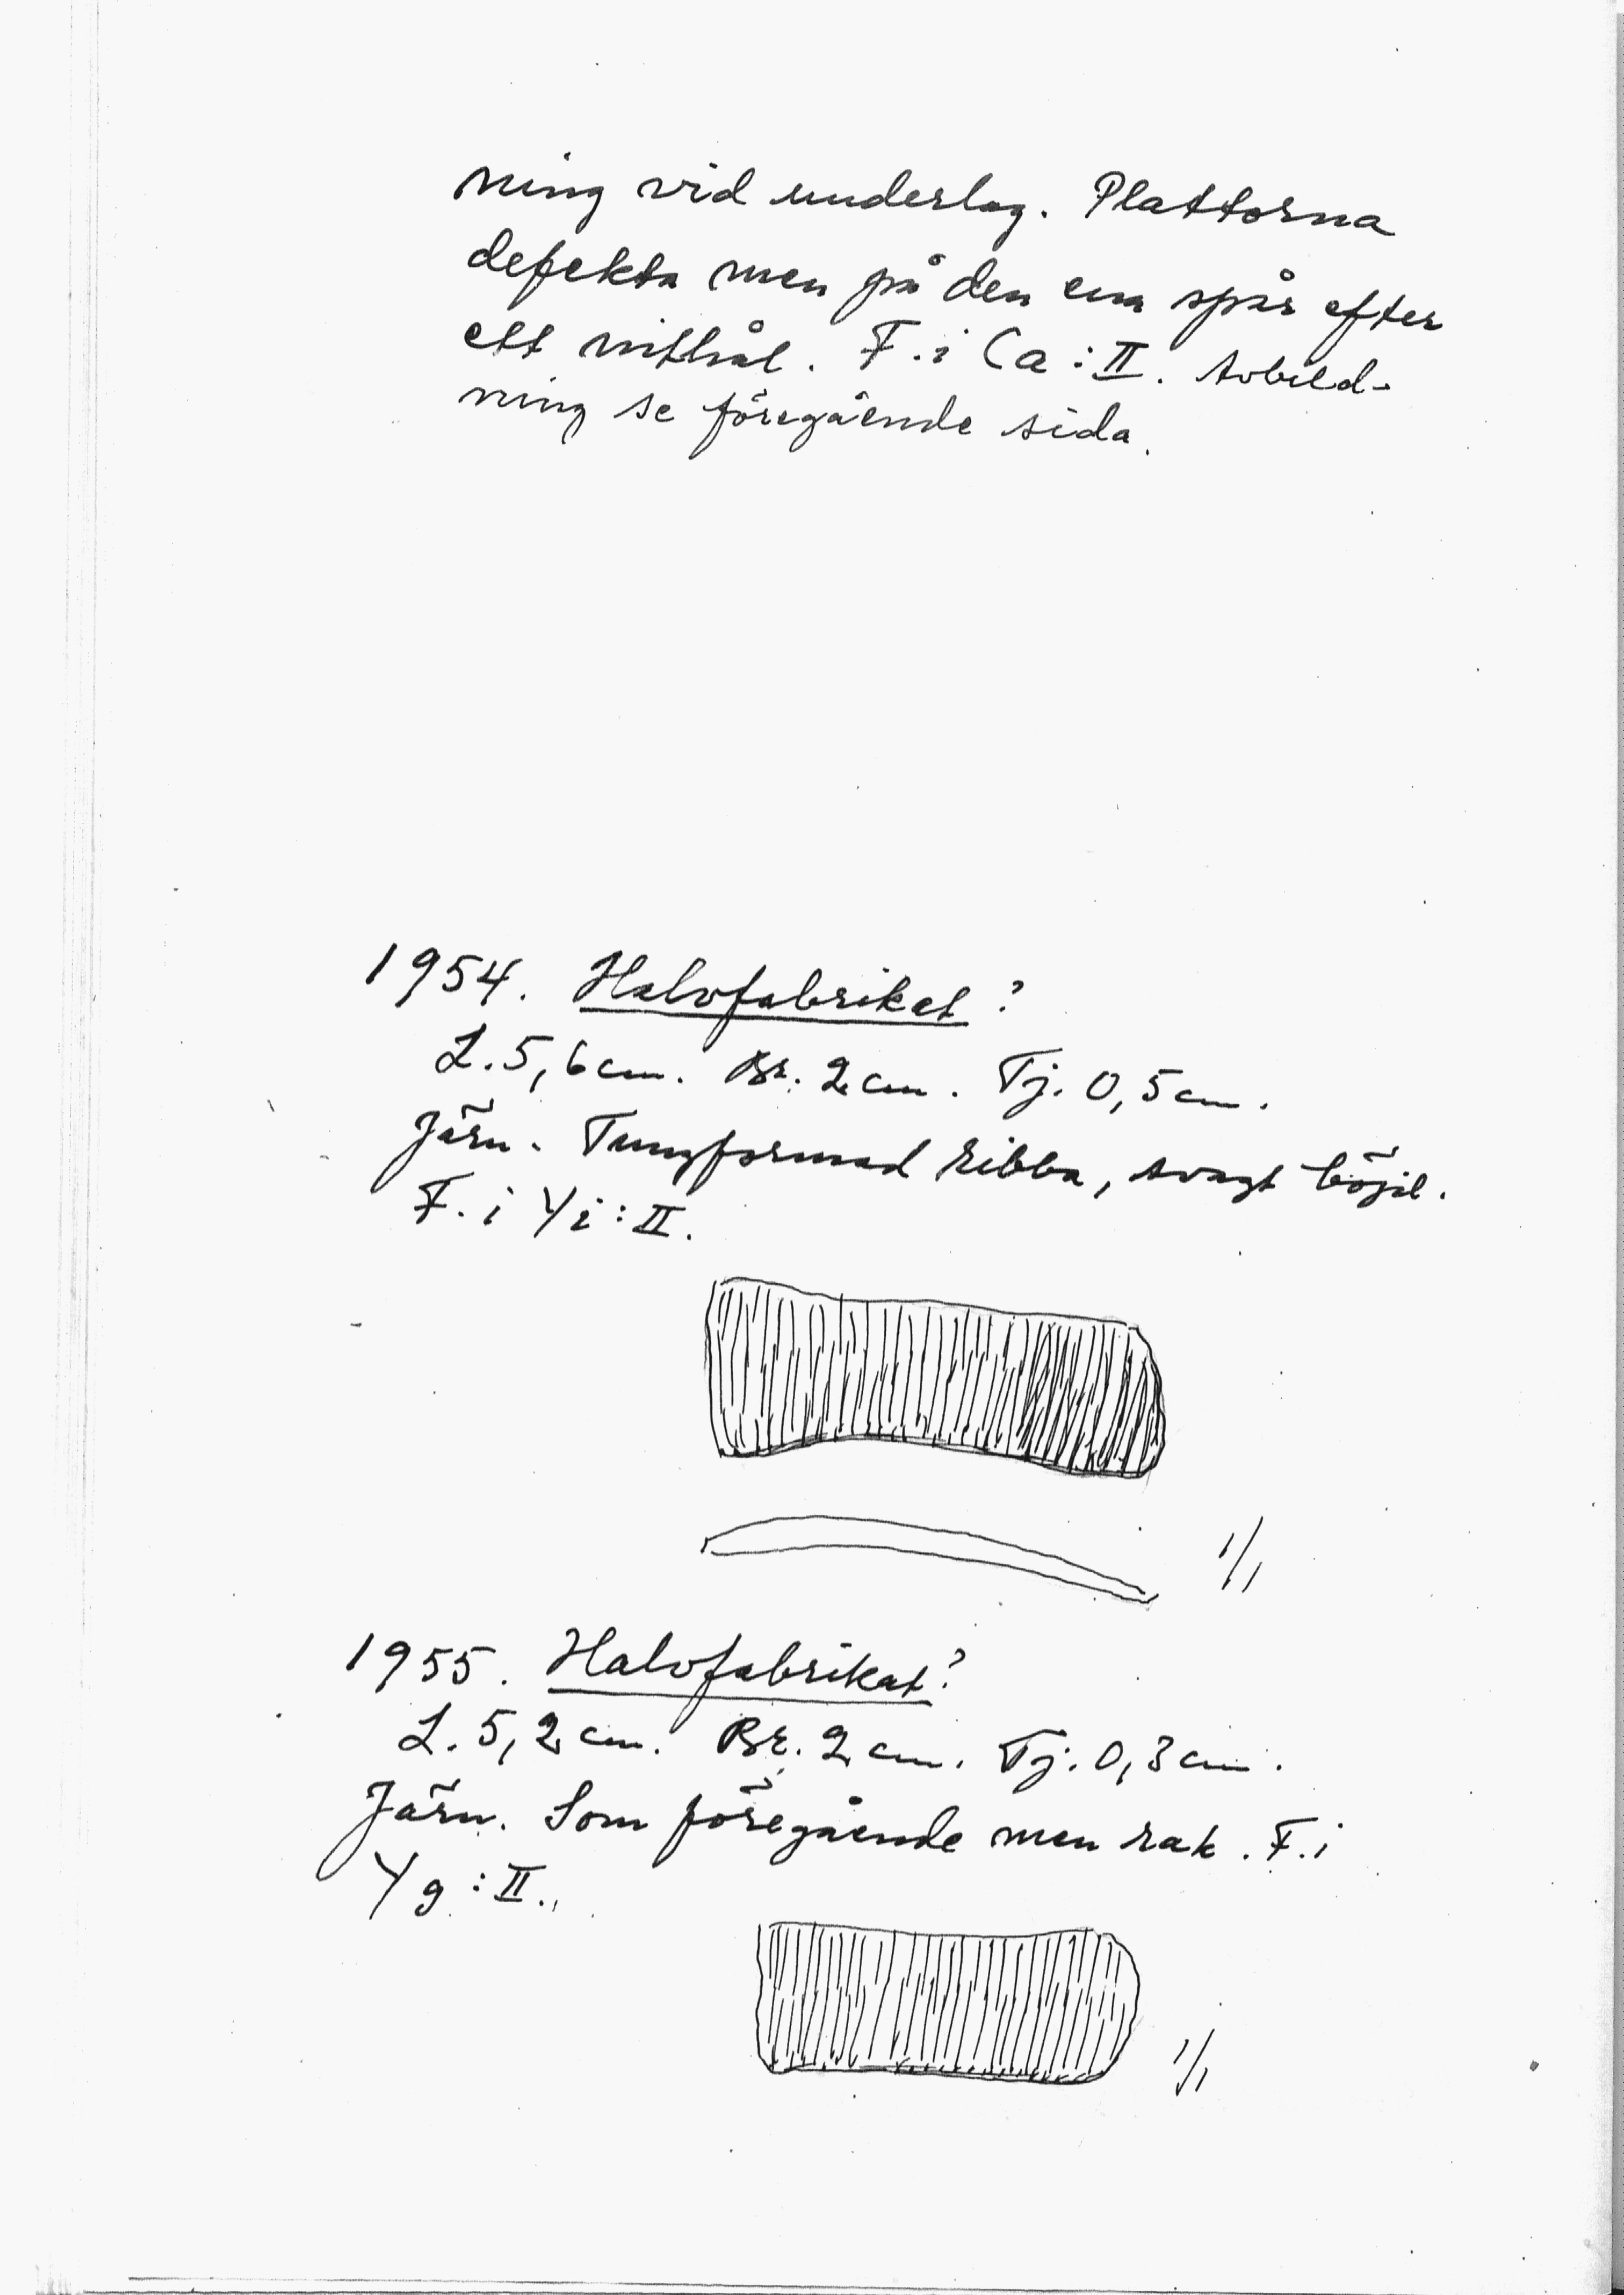 ning vid underlag. Plattorna
defekta men på den ena spår efter
ett nithål. F. i Ca : II. Avbild-
ning se föregående sida.
1954. Halvfabrikat ?
L. 5,6 cm. Br. 2 cm. Tj. 0,5 cm.
Järn. Tungformad ribba, svagt böjd.
F. i Yi : II.
1/1
1955. Halvfabrikat ?
L. 5,2 cm. Br. 2 cm. Tj. 0,3 cm.
Järn. Som föregående men rak. F. i
Yg : II.
1/1